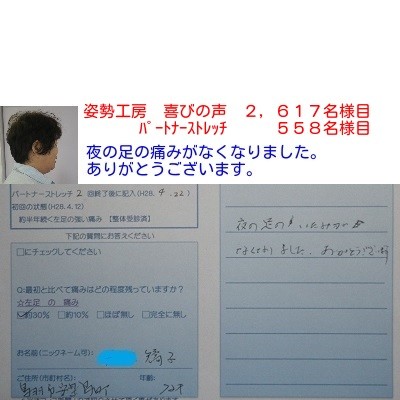 姿勢工房 喜びの声 2,617名様目
パートナーストレッチ 558名様目
夜の足の痛みがなくなりました。
ありがとうございます。
パートナーストレッチ 2 回終了後に記入(H28. 4. 22)
初回の状態(H28.4.12)
約半年続く左足の強い痛み 【整体受診済】
下記の質問にお答えください
□にチェックしてください
Q:最初と比べて痛みはどの程度残っていますか?
☆左足 の 痛み
☑約30% □約10% □ほぼ無し □完全に無し
お名前(ニックネーム可):
子
ご住所(市町村名): 年齢:
夜の足の いたみが
なくなりました。ありがとうござい